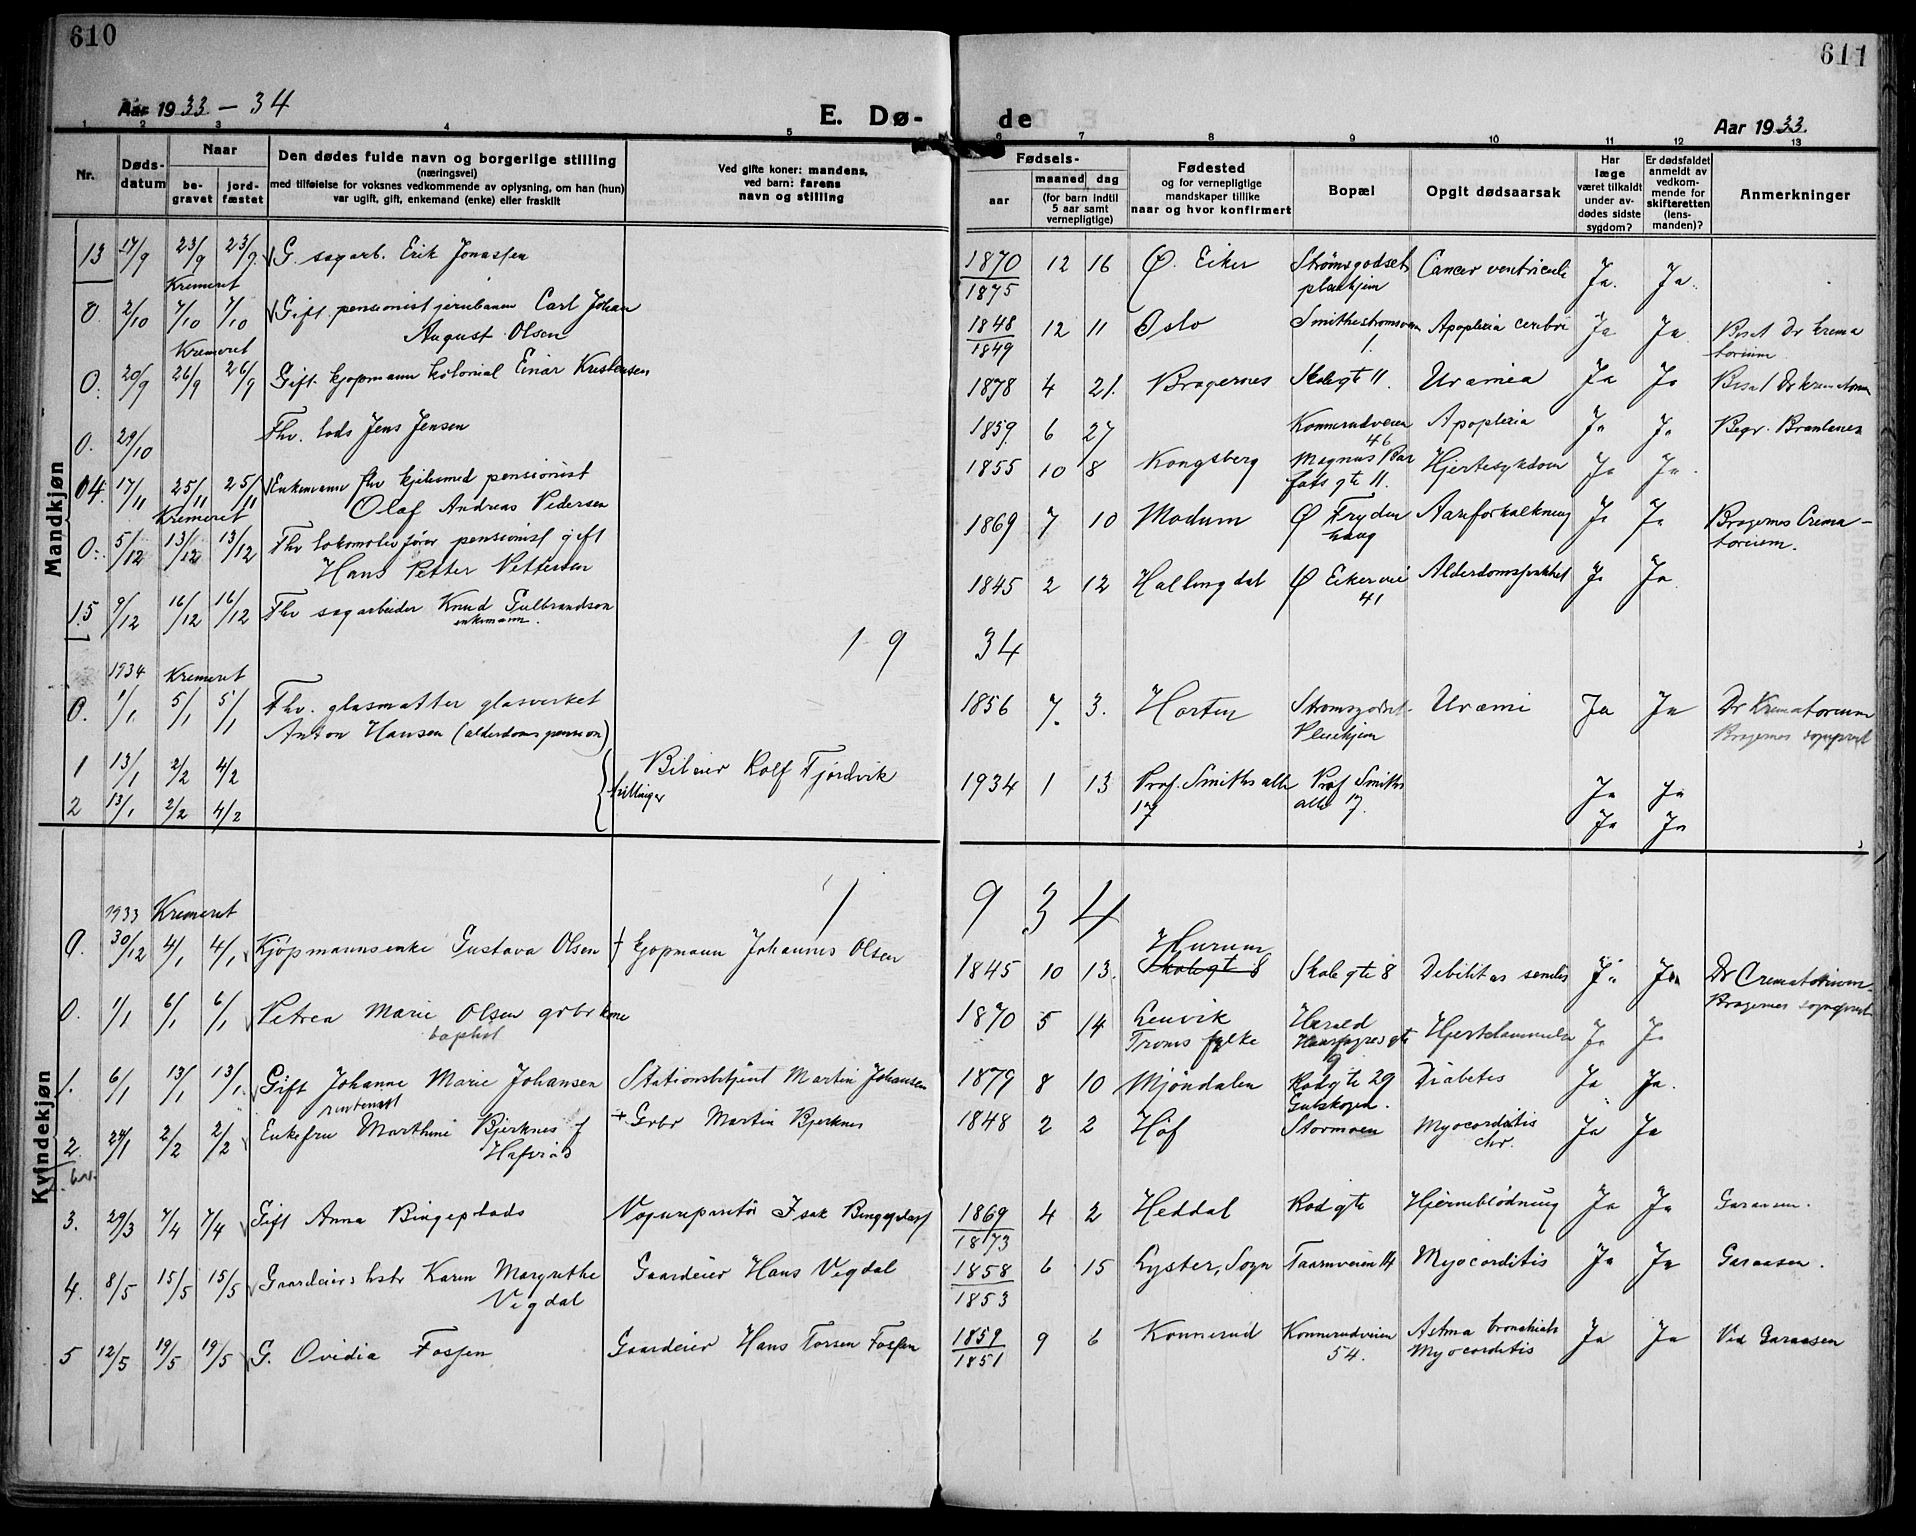 610
611
Aar 1933 - 34
E. Dø-
de
Aar 1933.
1 2 3 4 5 6 7 8 9 10 11 12 13
Nr.
Døds-datum
Naar
be-gravet
jord-fæstet
Den dødes fulde navn og borgerlige stilling
(næringsvei)
med tilføielse for voksnes vedkommende av oplysning, om han (hun)
var ugift, gift, enkemand (enke) eller fraskilt
Ved gifte koner: mandens,
ved barn: farens
navn og stilling
Fødsels-
aar
maaned dag
(for barn indtil
5 aar samt
vernepligtige)
Fødested
og for vernepligtige
mandskaper tillike
naar og hvor konfirmert
Bopæl
Opgit dødsaarsak
Har
læge
været tilkaldt
under av-
dødes sidste
sygdom?
Er dødsfaldet
anmeldt av
vedkom-
mende for
skifteretten
(lens-
manden)?
Anmerkninger
Mandkjøn
13 17/9 23/9 23/9 G. sagarb. Erik Jonassen 1870/1875 12 16 Ø. Eiker Strømsgodset pleiehjem Cancer ventriculi Ja. Ja.
Kremeret
0. 2/10 7/10 7/10 Gift pensionist jernbanen Carl Johan
August Olsen 1848/1849 12 11 Oslo Smithestrømsveien 1. Apoplexia cerebri Ja Ja. Bisat Dr krematorium
Kremeret
0. 20/9 26/9 26/9 Gift. kjøpmann kolonial Einar Kristensen 1878 4 21. Bragernes Skolegt 11. Uræmea Ja Ja Bisat Dr krematorium
0. 29/10 Fhv. lods Jens Jensen 1859 6 27 Konnerudveien 46 Apoplexia Ja Ja Begr.
04. 17/11 25/11 25/11 Enkemann fhv kjelsmed pensionist
Olaf Andreas Pedersen 1855 10 8 Kongsberg Magnus Barfots gte 11. Hjertesykdom Ja Ja.
Kremeret
0. 5/12 13/12 13/12 Fhv lokomotivfører pensionist gift
Hans Petter Pettersen 1869 7 10 Modum Ø Frydenhaug Aareforkalkning Ja Ja Bragernes Crematorium.
15 9/12 16/12 16/12 Fhv sagarbeider Knud Gulbrandson
enkemann. 1845 2 12 Hallingdal Ø Eikervei 41 Ja Ja.
19 34
1934 Kremeret
0. 1/1 5/1 5/1 Fhv. glasmatter glasverket
Anton Hansen (alderdomspension) 1856 7. 3. Horten Strømsgodset Pleiehjem Uræmi Ja Ja Dr Krematorium
Bragernes
1 13/1 2/2 4/2 Bileier Rolf Fjordvik 1934 1 13 Prof. Smiths alle 17 Prof Smiths alle 17. Ja Ja
2 13/1 2/2 4/2 tvillinger Ja Ja
Kvindekjøn
1 9 3 4
1933 Kremeret
0. 30/12 4/1 4/1 Kjøpmannsenke Gustava Olsen † kjøpmann Johannes Olsen 1845 10 13. Hurum Skolegt 8 Skole gte 8 Debilitas senilis Ja Ja Dr Crematorium
Bragernes
0. 1/1 6/1 6/1 Petrea Marie Olsen grbr kone
baptist 1870 5 14 Lenvik
Troms fylke Harald Haarfagres gte 9 Hjertelammelse Ja Ja
1. 6/1 13/1 13/1 Gift Johanne Marie Johansen Stationsbetjent Martin Johansen 1879 8 10 Mjøndalen Rodgte 29 Gulskogen. Diabetes Ja Ja.
2. 24/1 2/2 2/2 Enkefru Marthine Bjerknes f
+ Grbr Martin Bjerknes 1848 2 2 Hof Stormoen Myocorditis chr. Ja Ja
3. 29/3 7/4 7/4 Gift Anna Bingeplads Isak Bingeplass 1869/1873 4 2 Heddal Rodgte Hjerneblødning Ja Ja Garaasen.
4. 8/5 15/5 15/5 Gaardeiers hstr Karen Margrethe
Vigdal Gaardeier Hans Vigdal 1858/1853 6 15 Lyster, Sogn Taarnveien 14 Myocorditis Ja Ja Garaasen.
5 12/5 19/5 19/5 G. Ovidia Fossen Gaardeier Hans Torsen Fossen 1859/1851 9 6 Konnerud Konnerudveien 54. Astma bronchiale
Myocorditis Ja Ja Ved Garaasen